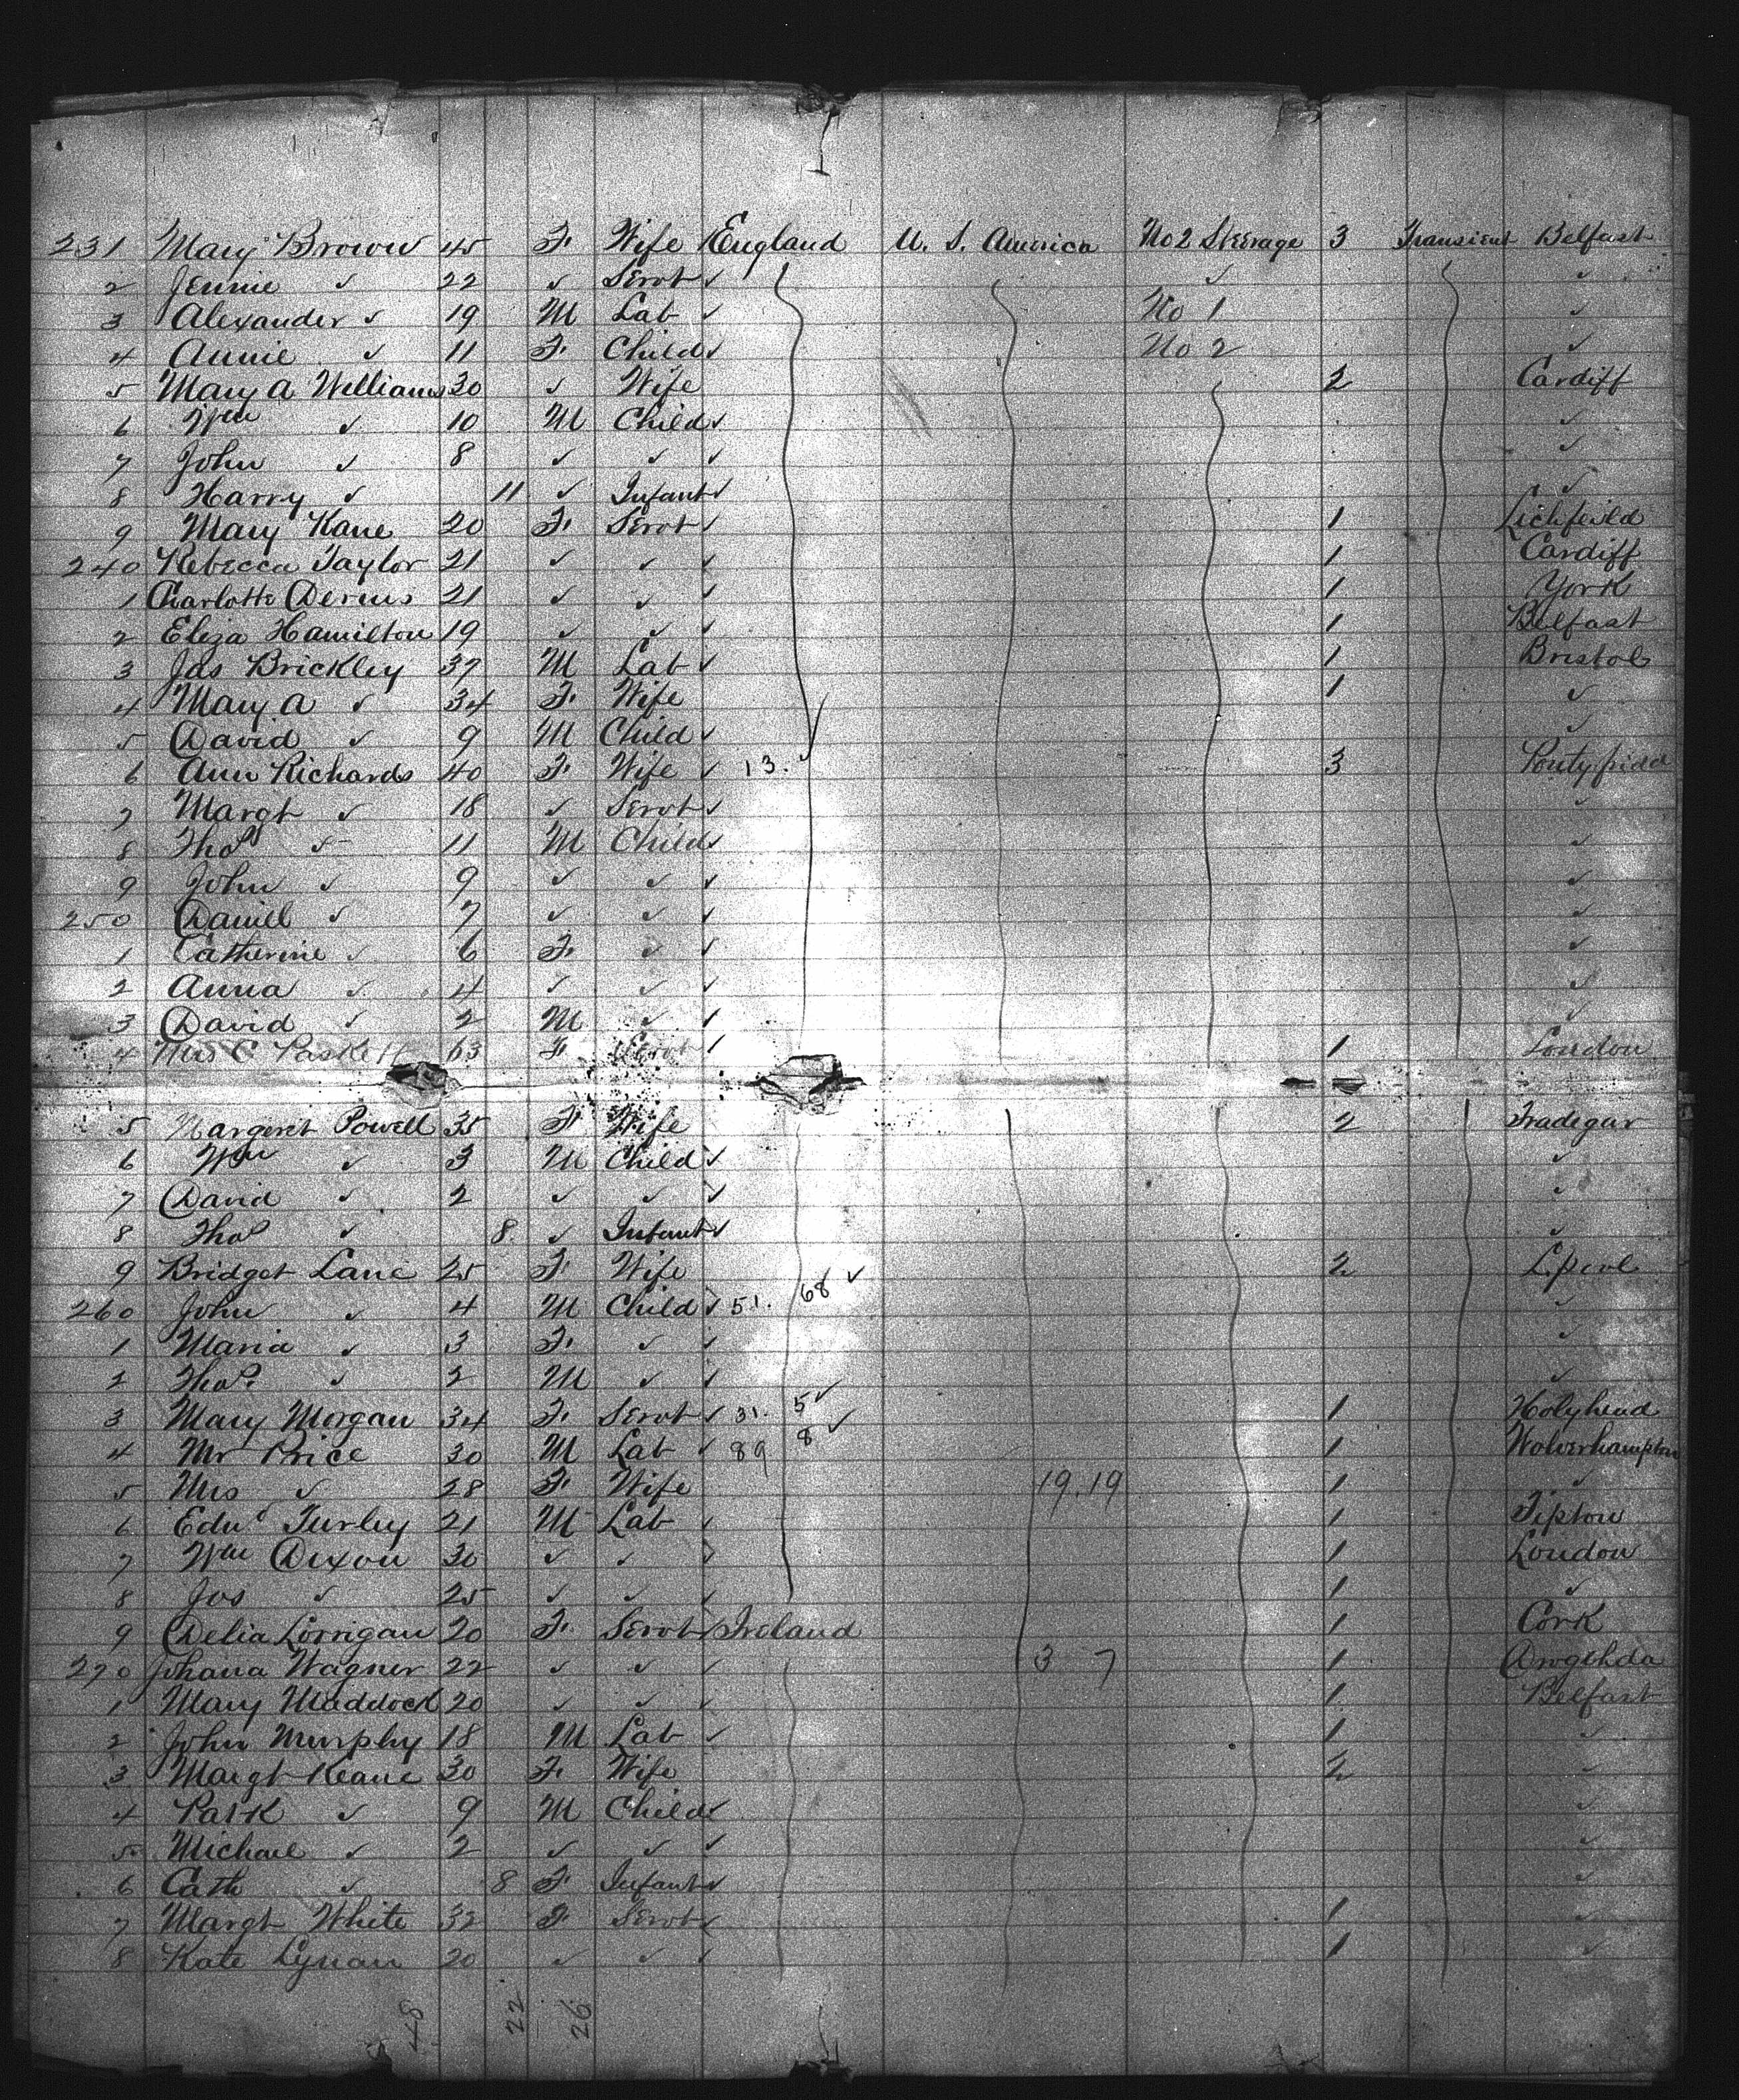 231 Mary Brown 45 F. Wife England U. S. America No 2 Steerage 3 Transient Belfast
2 Jennie ✓ 22 ✓ Servt ✓ ✓ ✓
3 Alexander ✓ 19 M Lab ✓ No 1 ✓
4 Annie ✓ 11 F. Child ✓ No 2 ✓
5 Mary A Williams 30 ✓ Wife 2 Cardiff
6 Wm ✓ 10 M Child ✓ ✓
7 John ✓ 8 ✓ ✓ ✓ ✓
8 Harry ✓ 11 ✓ Infant ✓ ✓
9 Mary Kane 20 F. Servt ✓ 1 Lichfeild
240 Rebecca Taylor 21 ✓ ✓ ✓ 1 Cardiff
1 Charlotte 21 ✓ ✓ ✓ 1 York
2 Eliza Hamilton 19 ✓ ✓ ✓ 1 Belfast
3 Jas Brickley 37 M Lab ✓ 1 Bristol
4 Mary A ✓ 34 F. Wife 1 ✓
5 David ✓ 9 M Child ✓ ✓
6 Ann Richards 40 F. Wife ✓ 13. ✓ 3 Pontypridd
7 Margt ✓ 18 ✓ Servt ✓ ✓
8 Thos ✓ 11 M Child ✓ ✓
9 John ✓ 9 ✓ ✓ ✓ ✓
250 Daniel ✓ 7 ✓ ✓ ✓ ✓
1 Catherine ✓ 6 F. ✓ ✓ ✓
2 Anna ✓ 4 ✓ ✓ ✓ ✓
3 David ✓ 2 M ✓ ✓ ✓
4 Mrs C 63 F Servt ✓ 1 London
5 Margeret Powell 35 F. Wife 2 Tradegar
6 Wm ✓ 3 M Child ✓ ✓
7 David ✓ 2 ✓ ✓ ✓ ✓
8 Thos ✓ 8. ✓ Infant ✓ ✓
9 Bridget Lane 25 F. Wife 2 Lpool
260 John ✓ 4 M Child ✓ 51. 68 ✓ ✓
1 Maria ✓ 3 F. ✓ ✓ ✓
2 Thos. ✓ 2 M ✓ ✓ ✓
3 Mary Morgan 34 F. Servt ✓ 31. 5 ✓ 1 Holyhead
4 Mr Price 30 M Lab ✓ 89 8 ✓ 1 Wolverhampton
5 Mrs ✓ 28 F. Wife 19.19 1 ✓
6 Edwd Turley 21 M Lab ✓ 1 Tipton
7 Wm Dixon 30 ✓ ✓ ✓ 1 London
8 Jos ✓ 25 ✓ ✓ ✓ 1 ✓
9 Delia Lorrigan 20 F. Servt ✓ Ireland 1 Cork
270 Johana Wagner 22 ✓ ✓ ✓ 3 7 1 Drogehda
1 Mary Maddock 20 ✓ ✓ ✓ 1 Belfast
2 John Murphy 18 M Lab ✓ 1 ✓
3 Margt Keane 30 F. Wife 2 ✓
4 Patk ✓ 9 M Child ✓ ✓
5 Michael ✓ 2 ✓ ✓ ✓ ✓
6 Cath ✓ 8 F. Infant ✓ ✓
7 Margt White 32 F Servt ✓ 1 ✓
8 Kate Lynan 20 ✓ ✓ ✓ 1 ✓
48 22 26